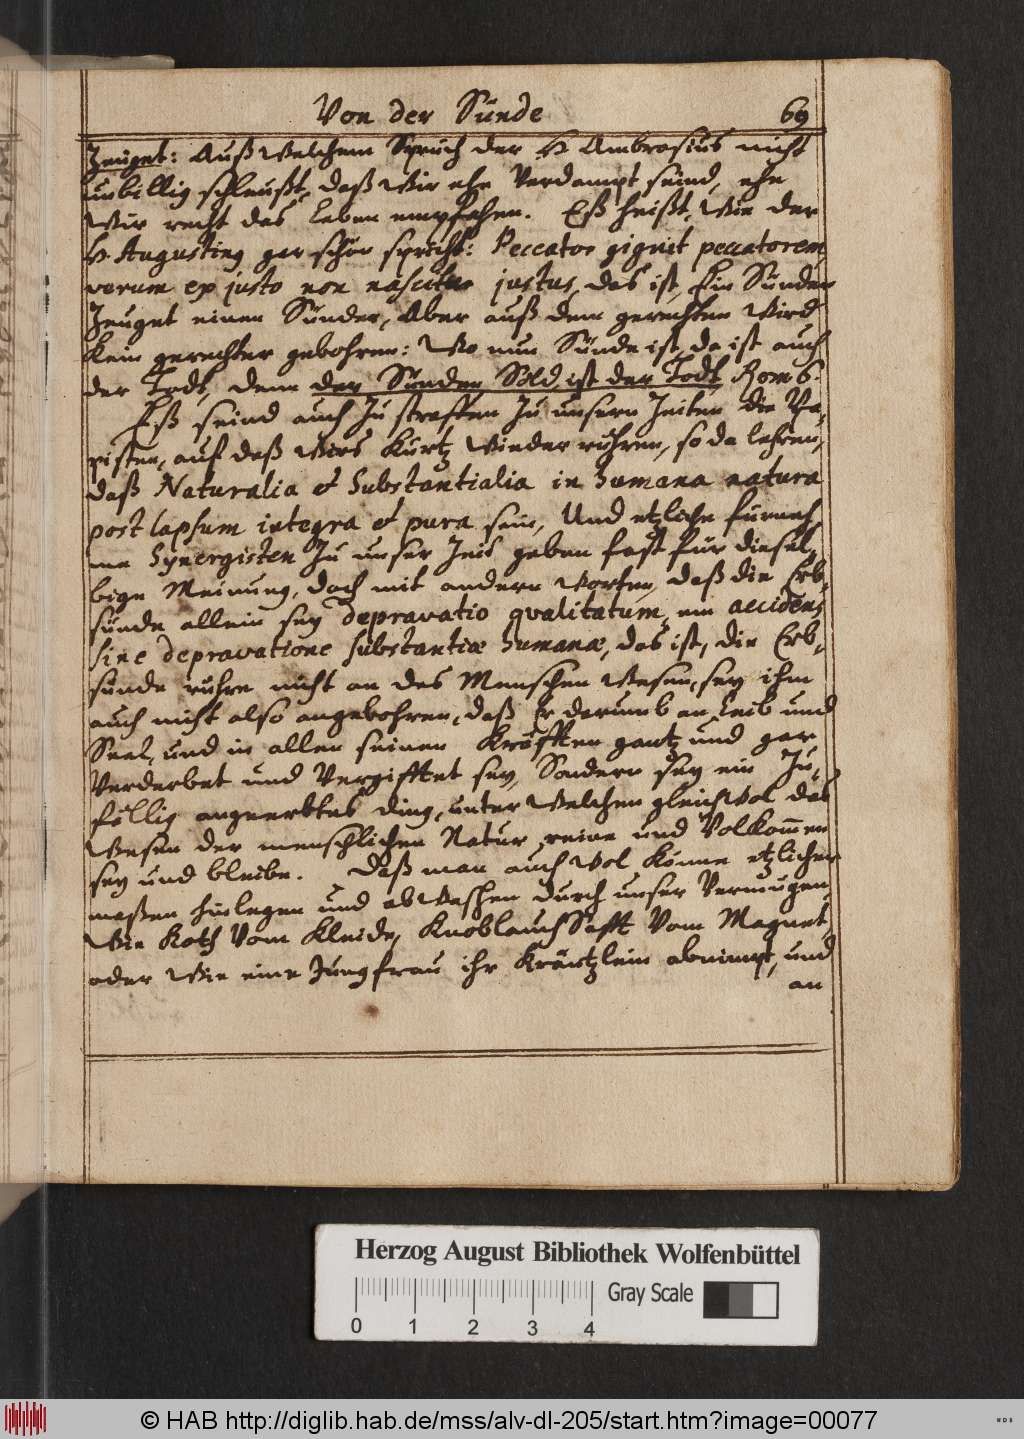 Von der Sünde 69
Zeuget: Auß Welchem Spruch der H Ambrosius nicht
unbillig schleußt, daß Wir ehe Verdampt seind, ehe
Wir recht das Leben empfahen. Eß heißt, Wie der
H Augustinus gar schön spricht: Peccator gignit peccatorem
verum ex justo non nascitur justus, das ist, Ein Sünder
Zeuget einen Sünder, Aber auß dem gerechten Wird
kein gerechter gebohren: Wo nun Sünde ist, da ist auch
der Todt, denn der Sünden Sold ist der Todt Rom 6.
Eß seind auch Zu straffen Zu unsern Zeiten die Pa,
pisten, auf daß Wirs kurtz Wieder rühren, so da lehren,
daß Naturalia et Substantialia in humana natura
post lapsum integra et pura sein, Und etzliche fürneh,
me Synergisten Zu unser Zeit geben fast für diesel,
bige Meinung, doch mit andern Worten, daß die Erb,
sünde allein sey depravatio qvalitatum, ein accidens
sine depravatione substantiæ humanæ, das ist, die Erb,
sünde rühre nicht an des Menschen Wesen, sey ihm
auch nicht also angebohren, daß Er darumb an Leib und
Seel, und in allen seinen Kräfften gantz und gar
Verderbet und Vergifftet sey, Sondern sey ein Zu,
fällig angeerbtes ding, unter Welchen gleichWol das
Wesen der menschlichen Natur reine und Volkom̄en
sey und bleibe. Daß man auch Wol könne etzlicher
maßen hinlegen und abWaschen durch unser Vermügen,
Wie Koth Vom Kleide, Knoblauch Safft Vom Magnet,
oder Wie eine Jungfrau ihr Kräntzlein abnimpt, und
an
Herzog August Bibliothek Wolfenbüttel
Gray Scale
0 1 2 3 4
© HAB http://diglib.hab.de/mss/alv-dl-205/start.htm?image=00077
WDB